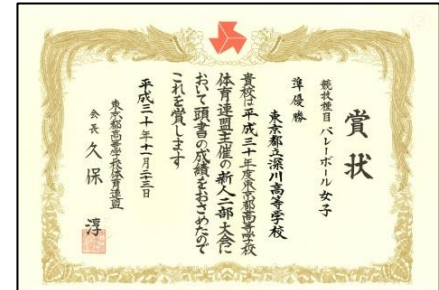 賞状
競技種目 バレーボール 女子
準優勝
東京都立深川高等学校
貴校は平成三十年度東京都高等学校
体育連盟主催の新人二部大会に
おいて頭書の成績をおさめたので
これを賞します
平成三十年十一月二十三日
東京都高等学校体育連盟
会長 久保 淳